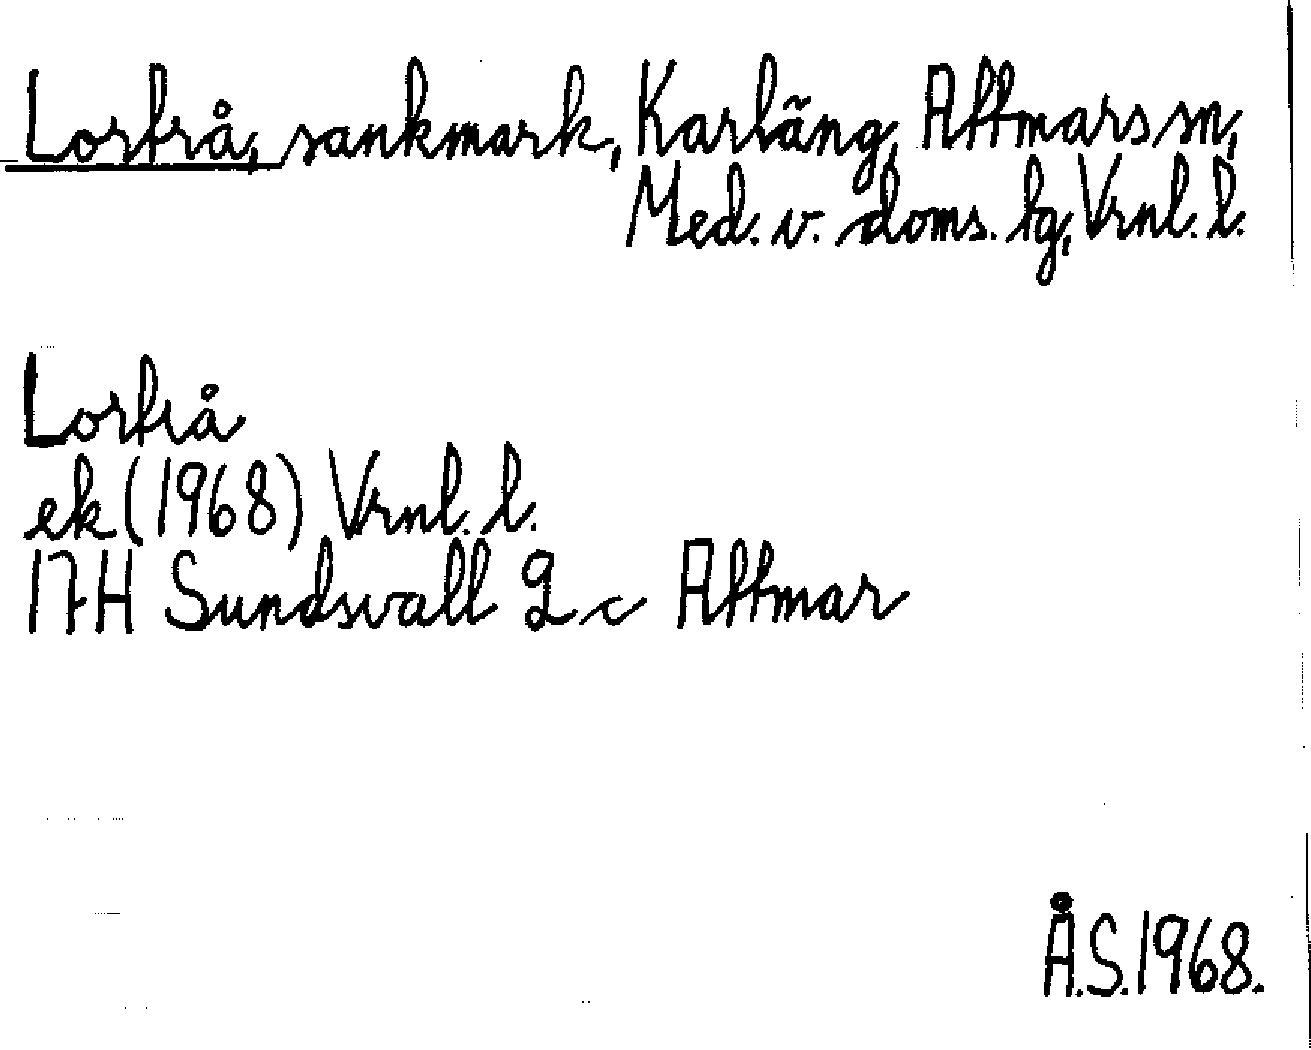 Lortrå, sankmark, Karläng, Attmars sn,
Med. v. doms. lg, Vrnl. l.
Lortrå
ek (1968) Vrnl. l.
17H Sundsvall 2 c Attmar
Å.S. 1968.